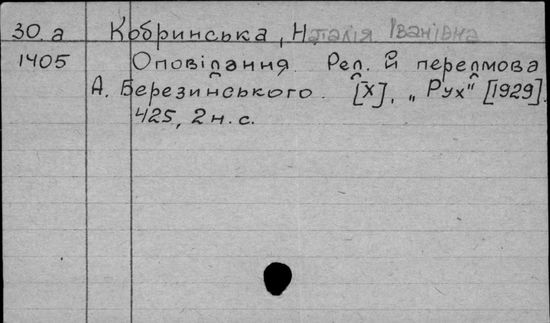 30. а Кобринська, Наталія Іванівна
1405 Оповідання. Ред. й передмова
А. Березинського. [Х], „Рух" [1929].
425, 2 н. с.